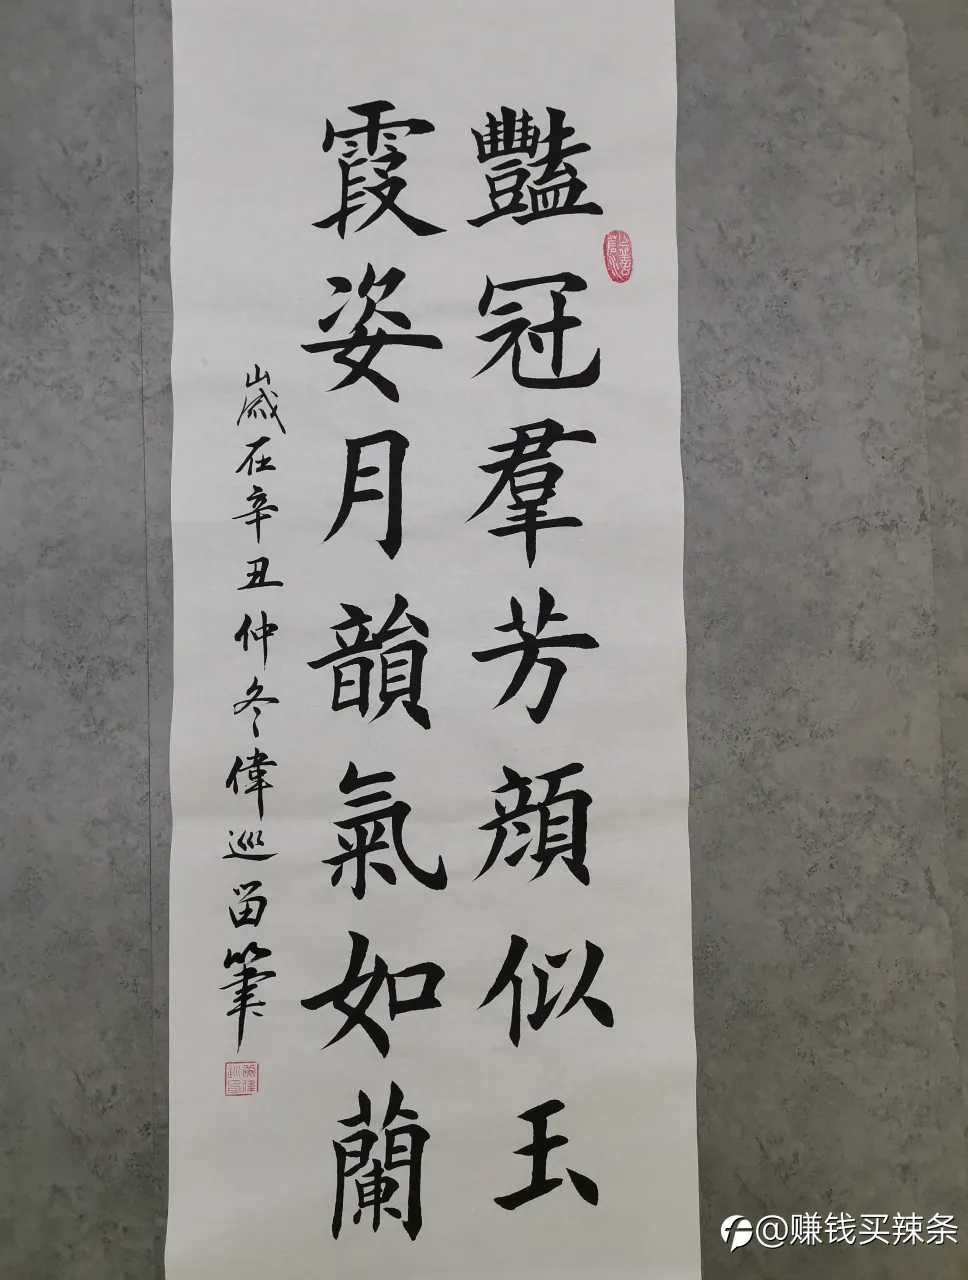 豔冠羣芳顔似玉
霞姿月韻氣如蘭
歲在辛丑仲冬偉巡留筆
@赚钱买辣条